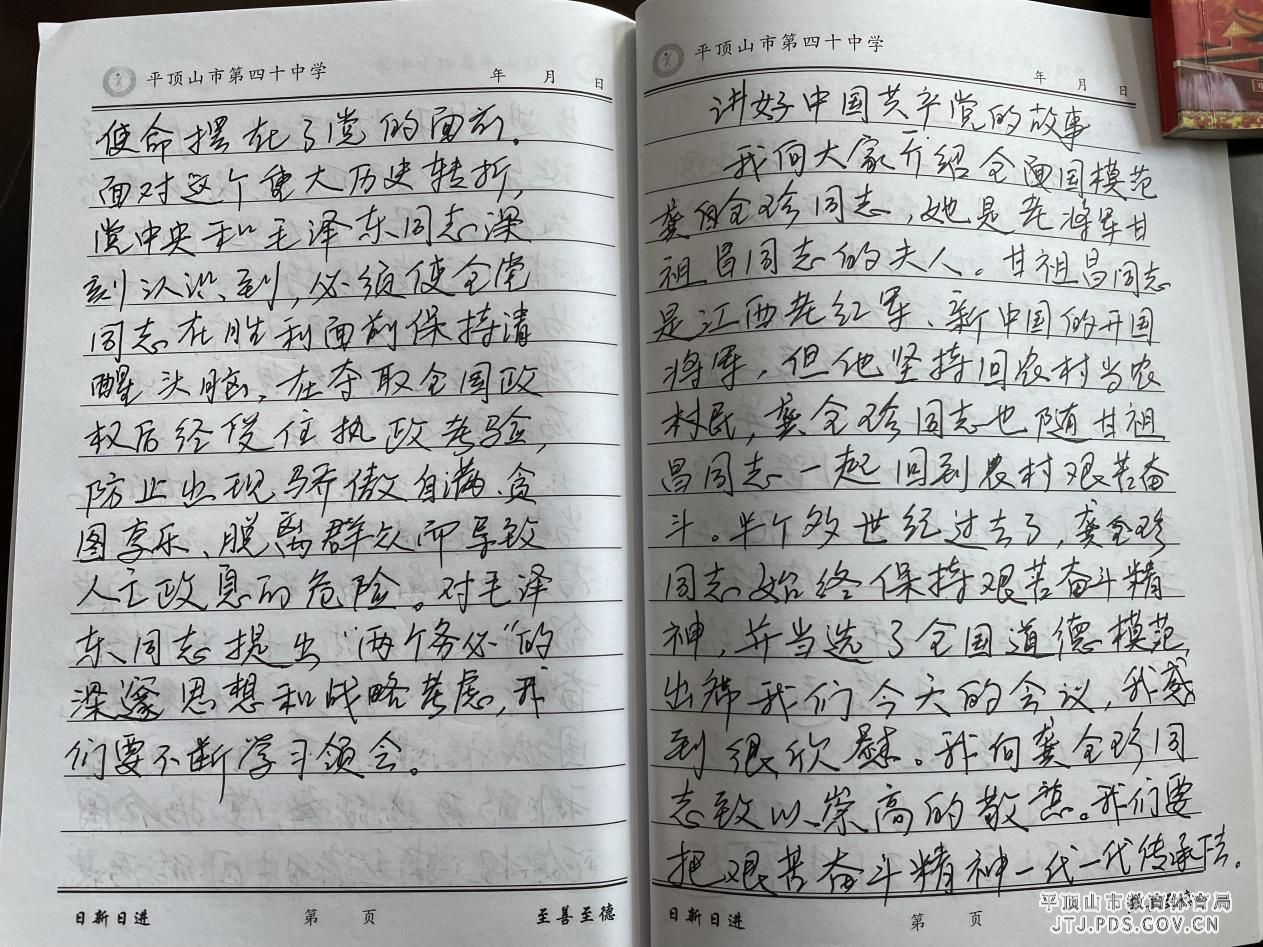 平顶山市第四十中学
年 月 日
使命摆在了党的面前。
面对这个重大历史转折，
党中央和毛泽东同志深
刻认识到，必须使全党
同志在胜利面前保持清
醒头脑，在夺取全国政
权后经受住执政考验，
防止出现骄傲自满、贪
图享乐、脱离群众而导致
人亡政息的危险。对毛泽
东同志提出“两个务必”的
深邃思想和战略考虑，我
们要不断学习领会。
日新日进 第 页 至善至德
平顶山市第四十中学
年 月 日
讲好中国共产党的故事
我向大家介绍全面国模范
龚全珍同志，她是老将军甘
祖昌同志的夫人。甘祖昌同志
是江西老红军、新中国的开国
将军，但他坚持回农村当农
村民，龚全珍同志也随甘祖
昌同志一起回到农村艰苦奋
斗。半个多世纪过去了，龚全珍
同志始终保持艰苦奋斗精
神，并当选了全国道德模范，
出席我们今天的会议，我感
到很欣慰。我向龚全珍同
志致以崇高的敬意。我们要
把艰苦奋斗精神一代一代传承下去。
日新日进 第 页
平顶山市教育体育局
JTJ.PDS.GOV.CN